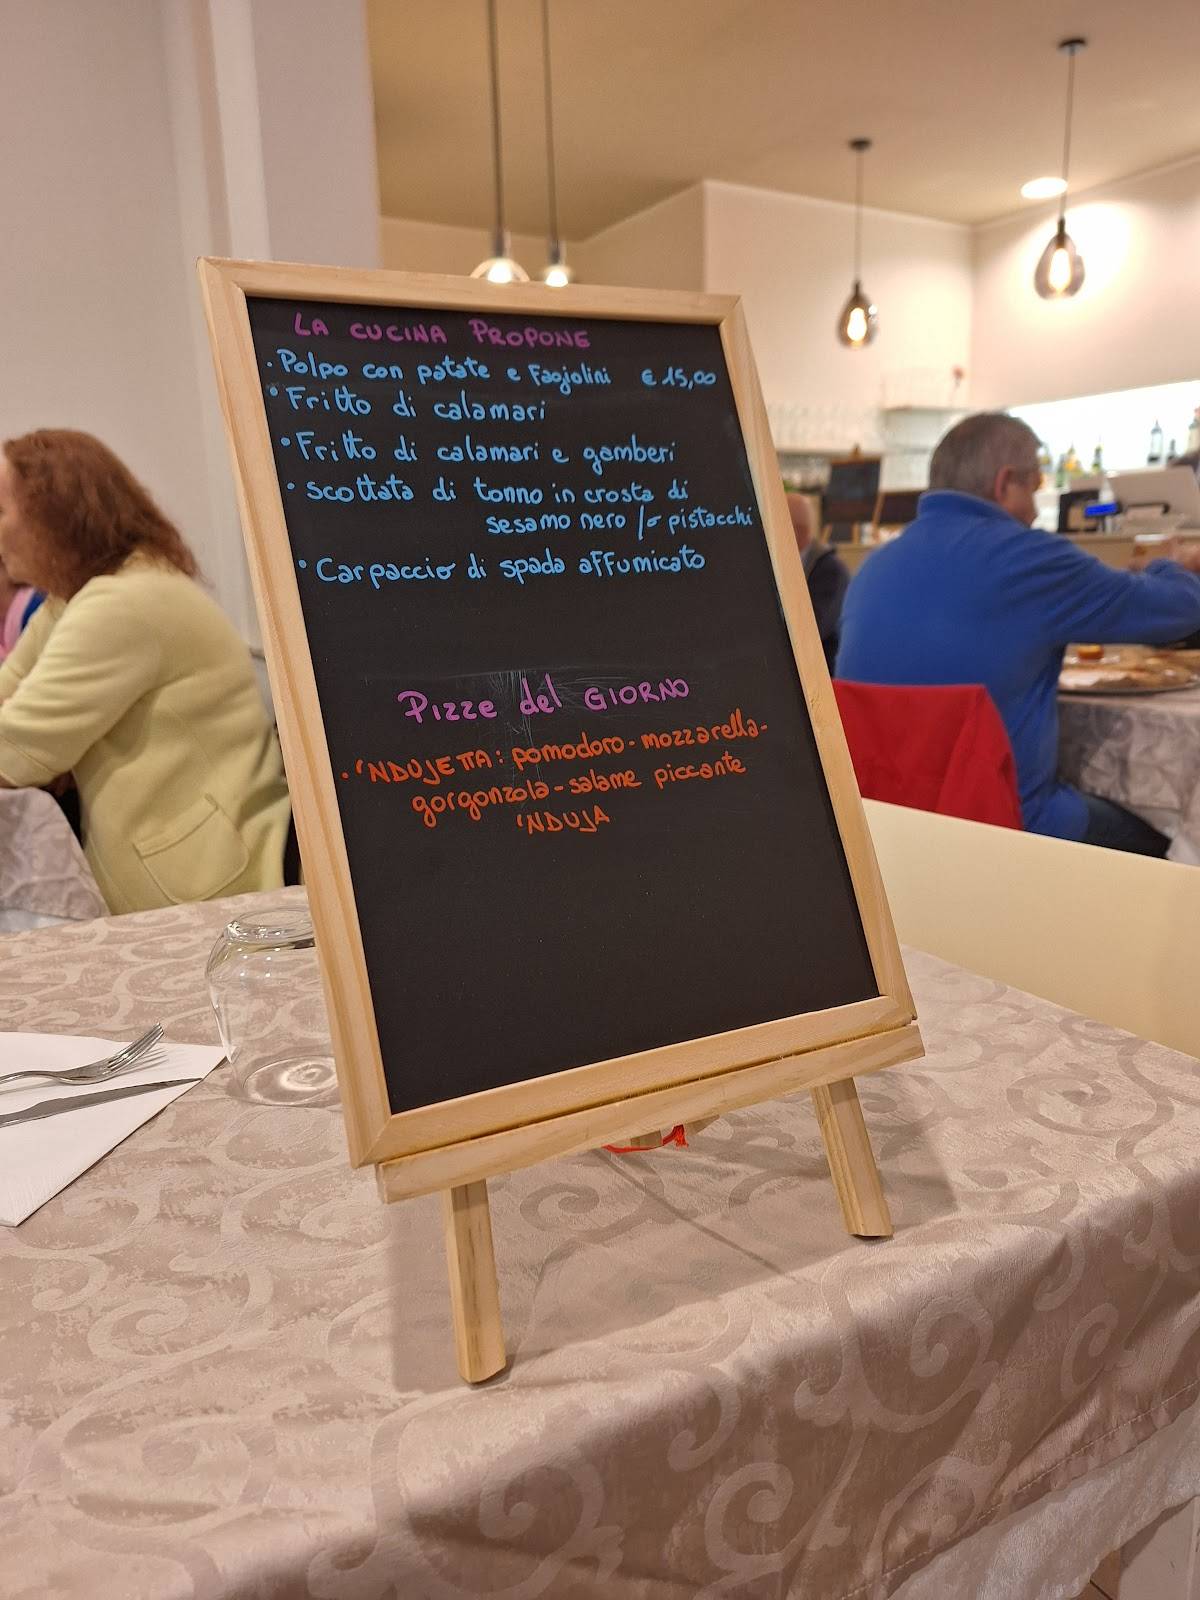 LA CUCINA PROPONE
• Polpo con patate e Fagiolini € 15,00
• Fritto di calamari
• Fritto di calamari e gamberi
• scottata di tonno in crosta di
sesamo nero /o pistacchi
• Carpaccio di spada affumicato
Pizze del GIORNO
• 'NDUJETTA: pomodoro - mozzarella -
gorgonzola - salame piccante
'NDUJA